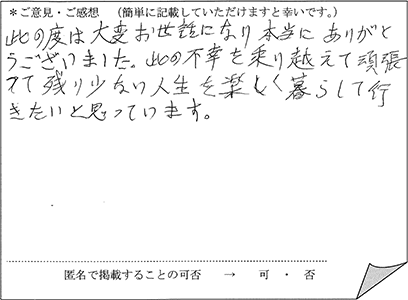 ＊ご意見・ご感想　（簡単に記載していただけますと幸いです。）
此の度は大変お世話になり本当にありがと
うございました。此の不幸を乗り越えて頑張
って残り少ない人生を楽しく暮らして行
きたいと思っています。
匿名で掲載することの可否　→　可　・　否